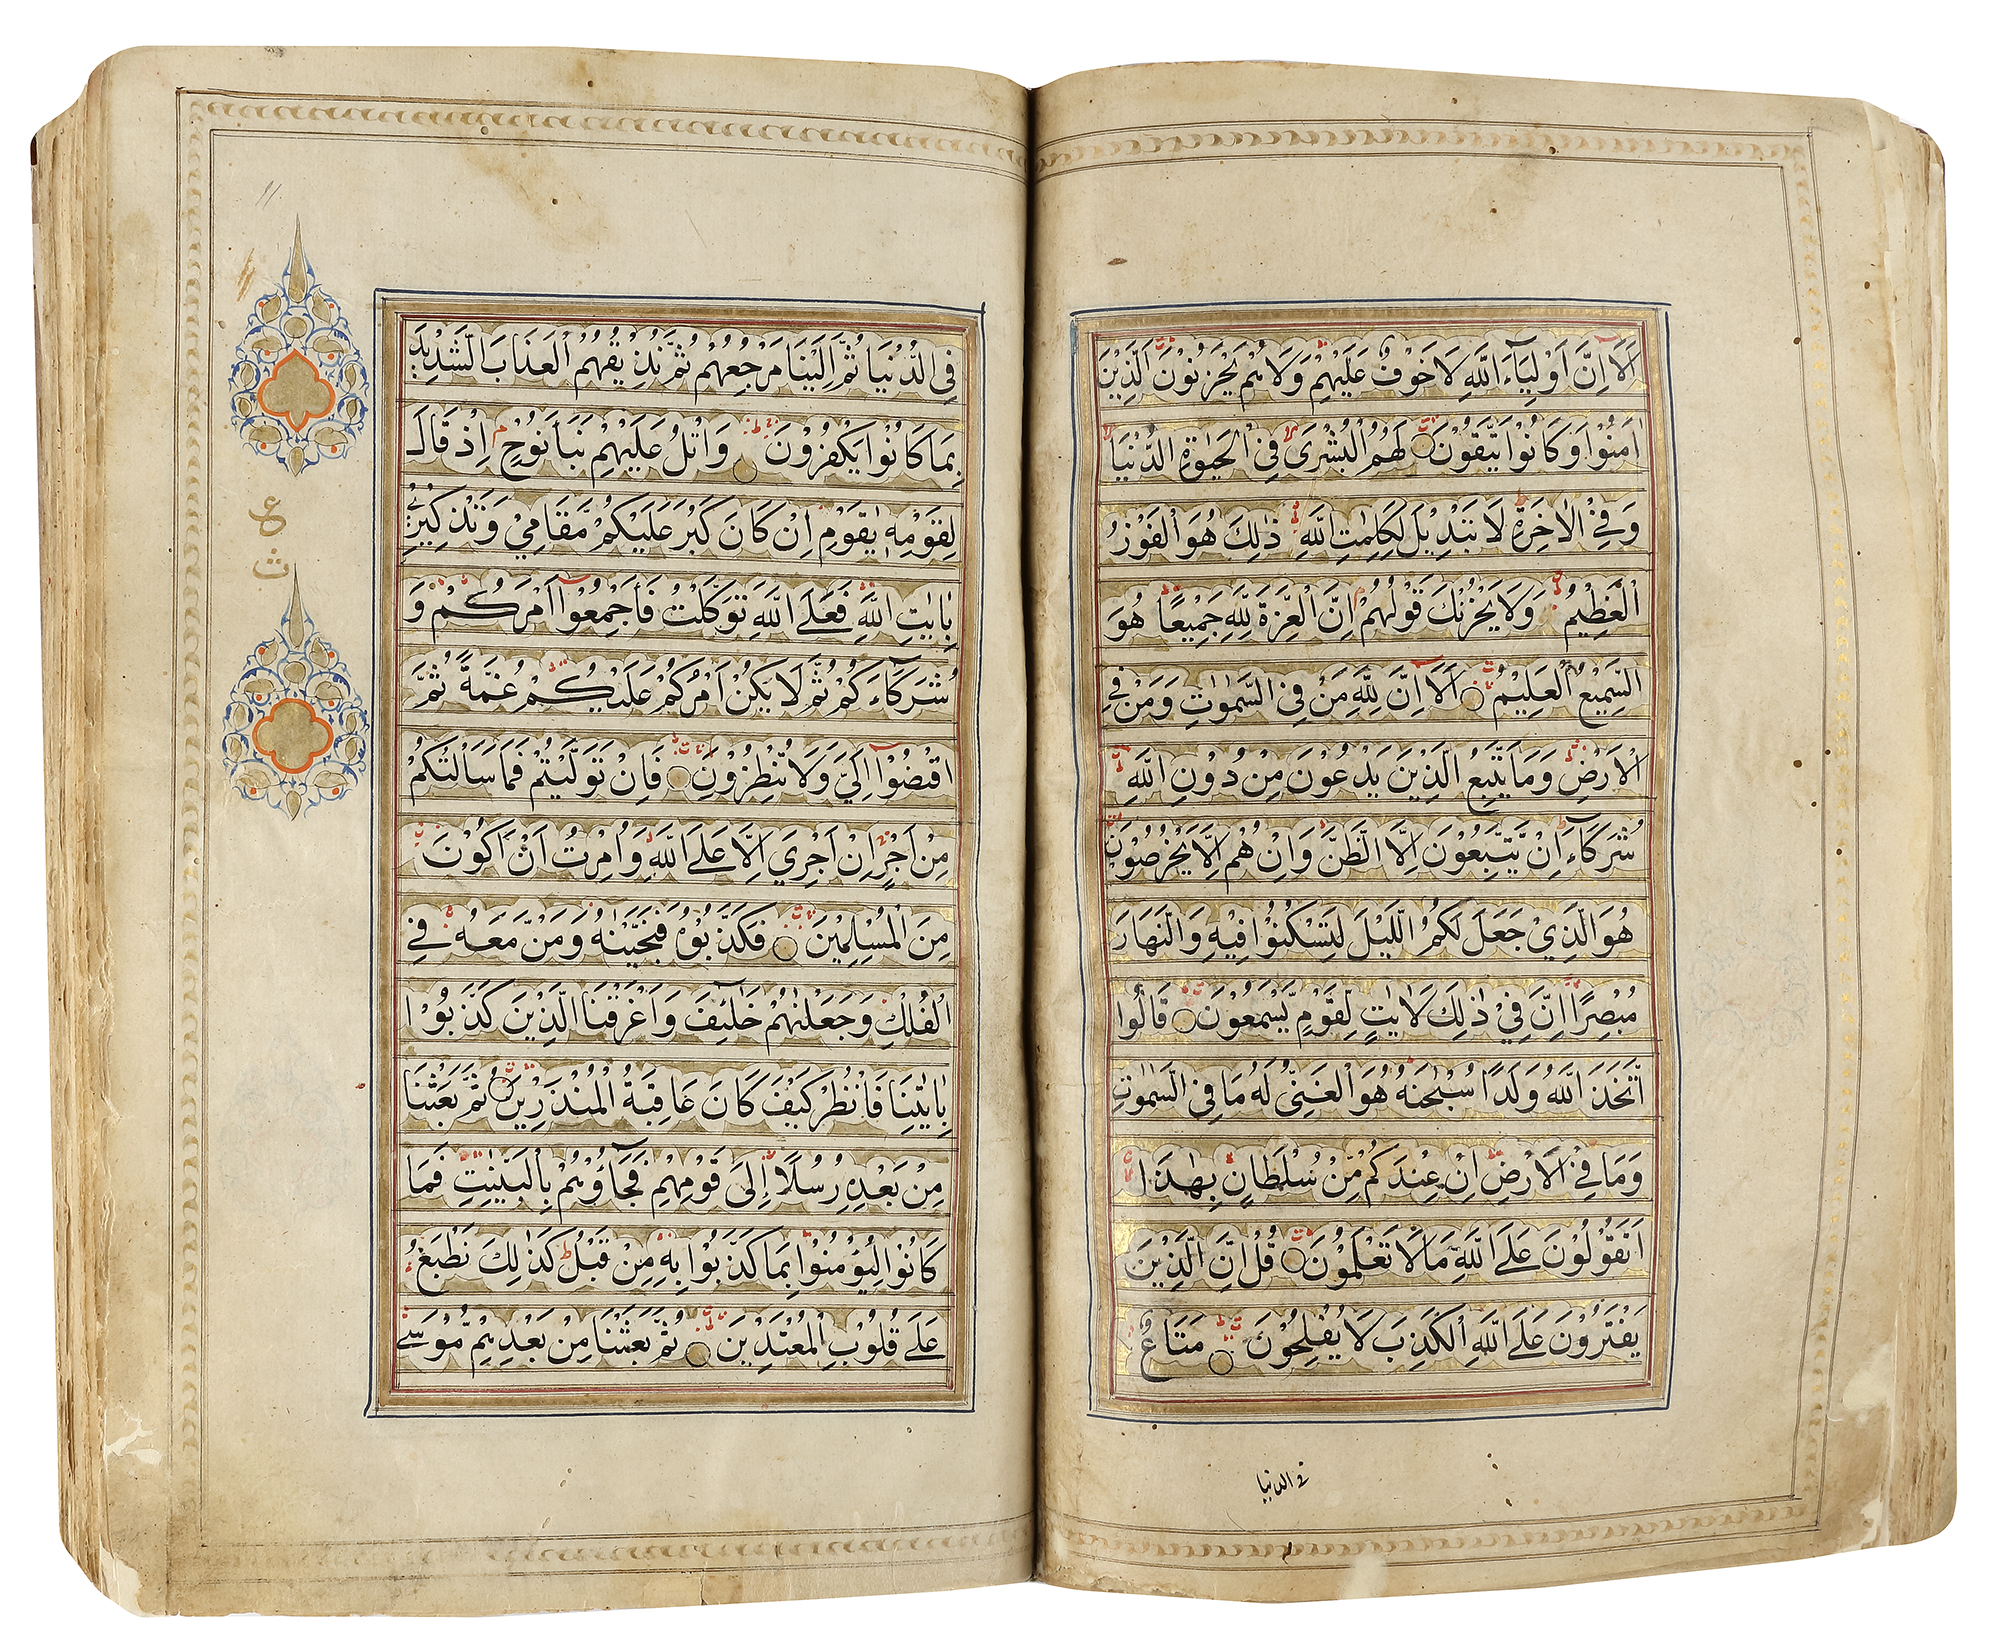 اَلَآ اِنَّ اَوْلِيَآءَ اللّٰهِ لَا خَوْفٌ عَلَيْهِمْ وَلَا هُمْ يَحْزَنُوْنَ اَلَّذِيْنَ
اٰمَنُوْا وَكَانُوْا يَتَّقُوْنَ لَهُمُ الْبُشْرٰى فِي الْحَيٰوةِ الدُّنْيَا
وَفِي الْاٰخِرَةِ لَا تَبْدِيْلَ لِكَلِمٰتِ اللّٰهِ ذٰلِكَ هُوَ الْفَوْزُ
الْعَظِيْمُ وَلَا يَحْزُنْكَ قَوْلُهُمْ اِنَّ الْعِزَّةَ لِلّٰهِ جَمِيْعًا هُوَ
السَّمِيْعُ الْعَلِيْمُ اَلَآ اِنَّ لِلّٰهِ مَنْ فِي السَّمٰوٰتِ وَمَنْ فِي
الْاَرْضِ وَمَا يَتَّبِعُ الَّذِيْنَ يَدْعُوْنَ مِنْ دُوْنِ اللّٰهِ
شُرَكَآءَ اِنْ يَّتَّبِعُوْنَ اِلَّا الظَّنَّ وَاِنْ هُمْ اِلَّا يَخْرُصُوْنَ
هُوَ الَّذِيْ جَعَلَ لَكُمُ اللَّيْلَ لِتَسْكُنُوْا فِيْهِ وَالنَّهَارَ
مُبْصِرًا اِنَّ فِيْ ذٰلِكَ لَاٰيٰتٍ لِّقَوْمٍ يَّسْمَعُوْنَ قَالُوا
اتَّخَذَ اللّٰهُ وَلَدًا سُبْحٰنَهُ هُوَ الْغَنِيُّ لَهُ مَا فِي السَّمٰوٰتِ
وَمَا فِي الْاَرْضِ اِنْ عِنْدَكُمْ مِّنْ سُلْطَانٍ بِهٰذَا
اَتَقُوْلُوْنَ عَلَى اللّٰهِ مَا لَا تَعْلَمُوْنَ قُلْ اِنَّ الَّذِيْنَ
يَفْتَرُوْنَ عَلَى اللّٰهِ الْكَذِبَ لَا يُفْلِحُوْنَ مَتَاعٌ
في الدنيا
فِي الدُّنْيَا ثُمَّ اِلَيْنَا مَرْجِعُهُمْ ثُمَّ نُذِيْقُهُمُ الْعَذَابَ الشَّدِيْدَ
بِمَا كَانُوْا يَكْفُرُوْنَ وَاتْلُ عَلَيْهِمْ نَبَاَ نُوْحٍ اِذْ قَالَ
لِقَوْمِهٖ يٰقَوْمِ اِنْ كَانَ كَبُرَ عَلَيْكُمْ مَّقَامِيْ وَتَذْكِيْرِيْ
بِاٰيٰتِ اللّٰهِ فَعَلَى اللّٰهِ تَوَكَّلْتُ فَاَجْمِعُوْٓا اَمْرَكُمْ وَ
شُرَكَآءَكُمْ ثُمَّ لَا يَكُنْ اَمْرُكُمْ عَلَيْكُمْ غُمَّةً ثُمَّ
اقْضُوْٓا اِلَيَّ وَلَا تُنْظِرُوْنِ فَاِنْ تَوَلَّيْتُمْ فَمَا سَاَلْتُكُمْ
مِّنْ اَجْرٍ اِنْ اَجْرِيَ اِلَّا عَلَى اللّٰهِ وَاُمِرْتُ اَنْ اَكُوْنَ
مِنَ الْمُسْلِمِيْنَ فَكَذَّبُوْهُ فَنَجَّيْنٰهُ وَمَنْ مَّعَهُ فِي
الْفُلْكِ وَجَعَلْنٰهُمْ خَلٰٓئِفَ وَاَغْرَقْنَا الَّذِيْنَ كَذَّبُوْا
بِاٰيٰتِنَا فَانْظُرْ كَيْفَ كَانَ عَاقِبَةُ الْمُنْذَرِيْنَ ثُمَّ بَعَثْنَا
مِنْ بَعْدِهٖ رُسُلًا اِلٰى قَوْمِهِمْ فَجَآؤُهُمْ بِالْبَيِّنٰتِ فَمَا
كَانُوْا لِيُؤْمِنُوْا بِمَا كَذَّبُوْا بِهٖ مِنْ قَبْلُ كَذٰلِكَ نَطْبَعُ
عَلٰى قُلُوْبِ الْمُعْتَدِيْنَ ثُمَّ بَعَثْنَا مِنْ بَعْدِهِمْ مُّوْسٰى
ع
ث